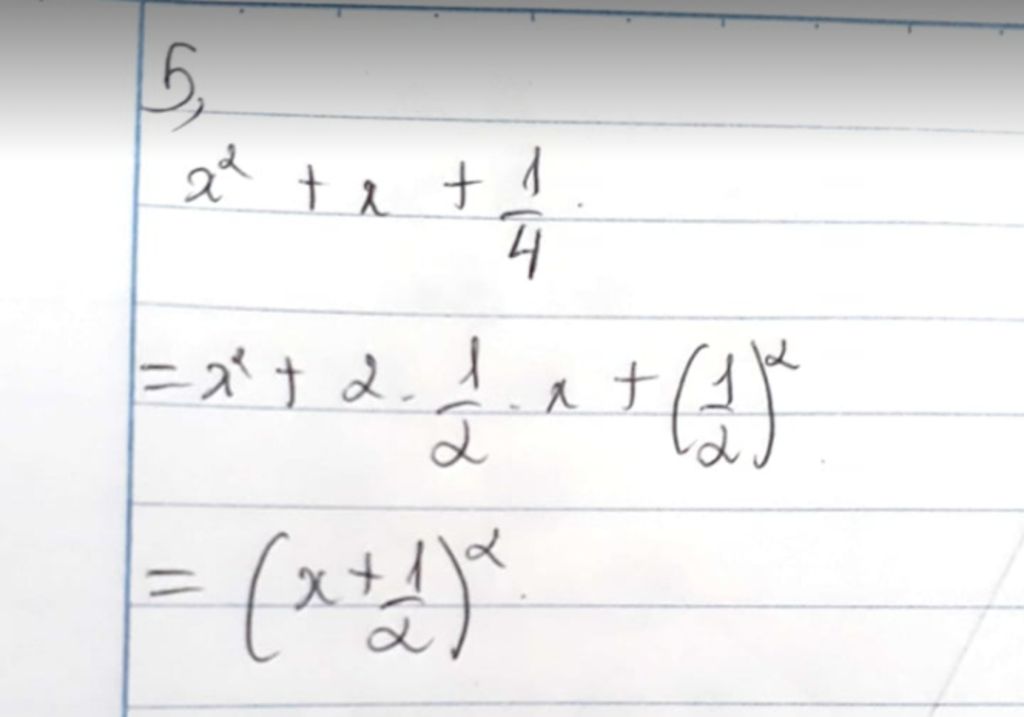 5,
x² + x + 1/4
= x² + 2 . 1/2 . x + (1/2)²
= (x + 1/2)²